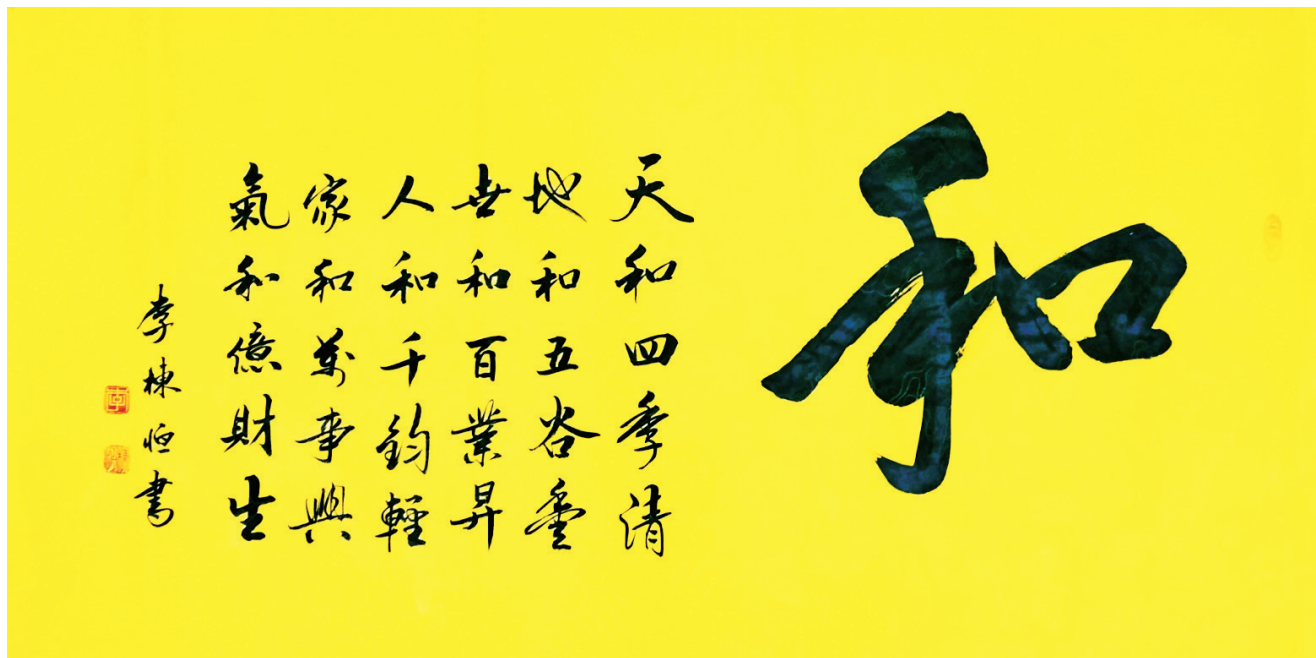 和
天和四季清
地和五谷登
世和百業昇
人和千鈞輕
家和萬事興
氣和億財生
李棟恒書